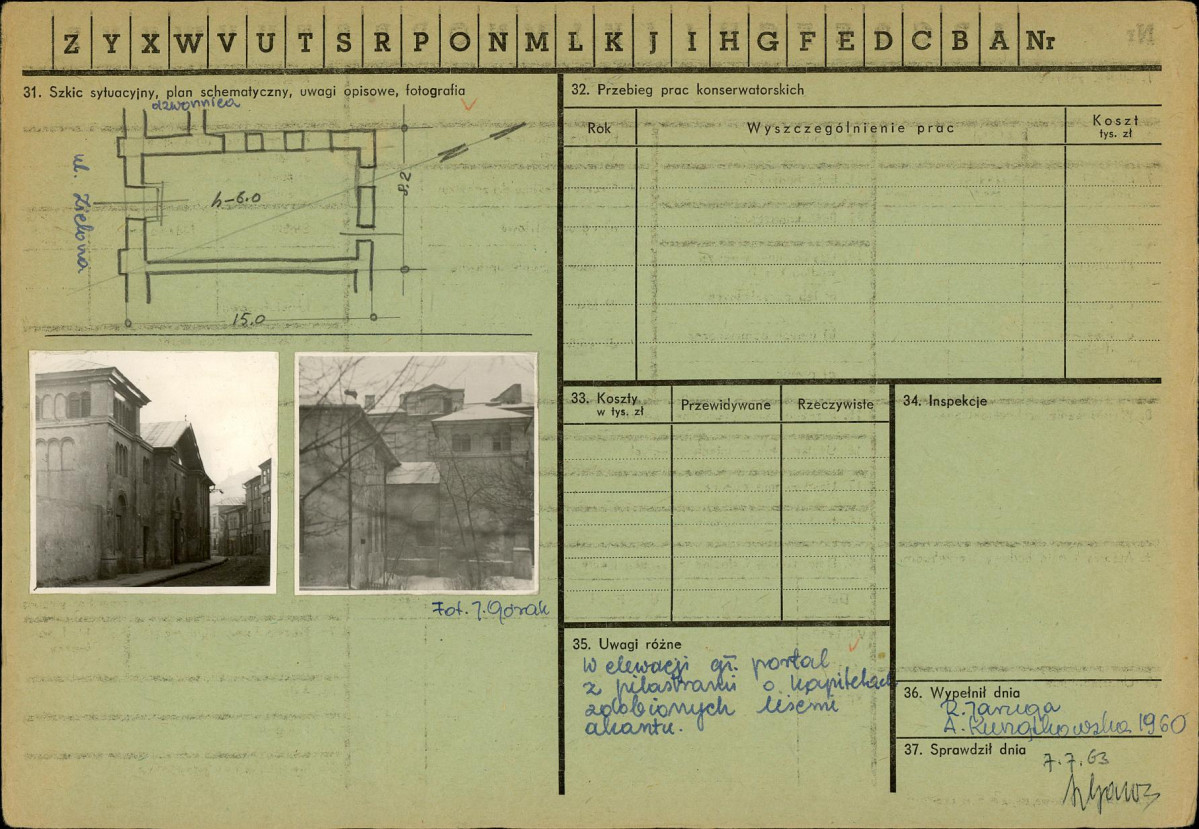 Z Y X W V U T S R P O N M L K J I H G F E D C B A Nr
31. Szkic sytuacyjny, plan schematyczny, uwagi opisowe, fotografia
dzwonnica
ul. Zielona
h-6.0
8.2
15.0
Fot. J. Górak
32. Przebieg prac konserwatorskich
Rok
Wyszczególnienie prac
Koszt
tys. zł
33. Koszty
w tys. zł
Przewidywane
Rzeczywiste
34. Inspekcje
35. Uwagi różne
W elewacji gł. portal
z pilastrami o kapitelach
zdobionych liśćmi
akantu.
36. Wypełnił dnia
R. Jaruga
A. 1960
37. Sprawdził dnia
7.7.63